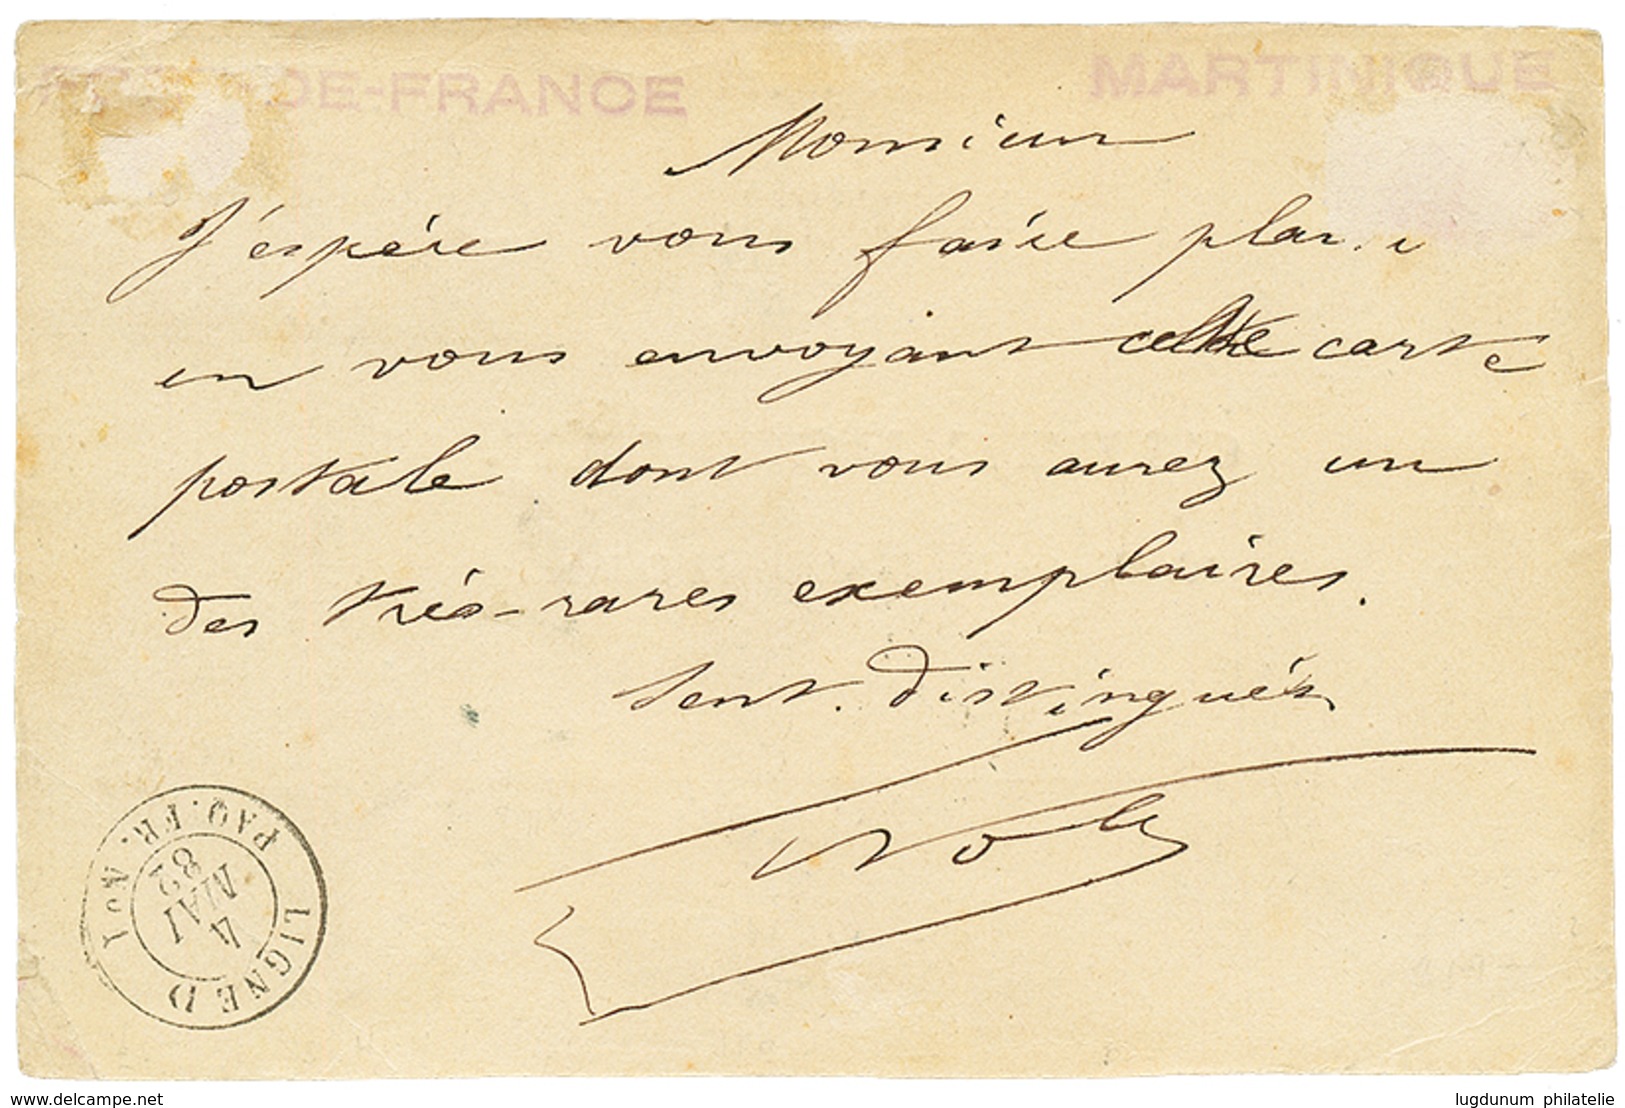 DE-FRANCE MARTINIQUE
Monsieur
J'espère vous faire plai
en vous envoyant cette carte
postale dont vous aurez un
des très-rares exemplaires.
Sent. distingués
LIGNE D PAQ. FR. No 1
4 MAI 82
www.delcampe.net
lugdunum philatelie